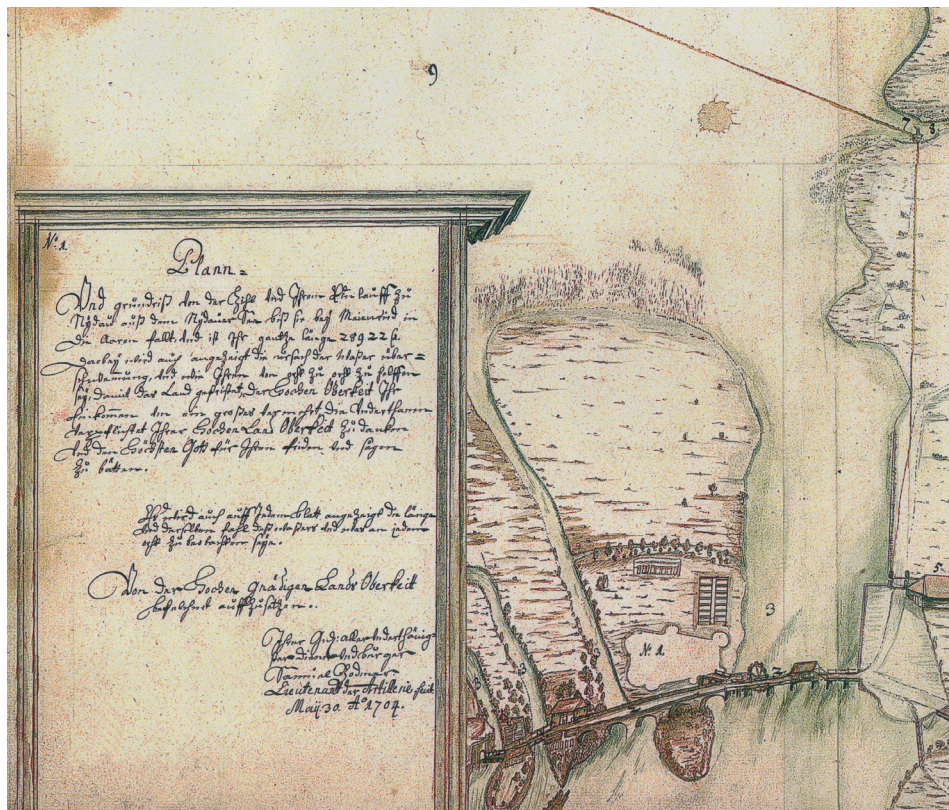 9
7 8
N° 1.
Plann =
Und grundriß von der Zihl und Ihrem Ein lauff zu
Nydauw auß dem Nydauer See biß sie bey Meienried in
die Aaren fallt und ist Ihr gantze länge 28922 s.
darbey wird auch angezeigt die ursach der waßer über =
schwemung, und wie Ihnen von ohrt zu ohrt zu helffen
sey, damit das Land gefristet, der Hochen Oberkeit Ihr
einkomen um ein großes vermehrt, die Underthanen
verpflichtet Ihrer Hochen Land Oberkeit zu dancken
und den Höchsten Gott für Ihren friden und sägen
zu bätten.
Es wird auch auff Jedem blatt angezeigt die länge
und derselben fahl deß waßers und was an jedem
ohrt zu beobachten seye.
Von der Hochen gnädigen Lands Oberkeit
befelchnet auffzusetzen.
Ihrer Gnd: aller underthänigster
diener und burger
Samuel Bodmer
Lieutenant der Artillerie fecit
Maÿ 30 A° 1704.
5.
3
N° 1.
2
3
3
3